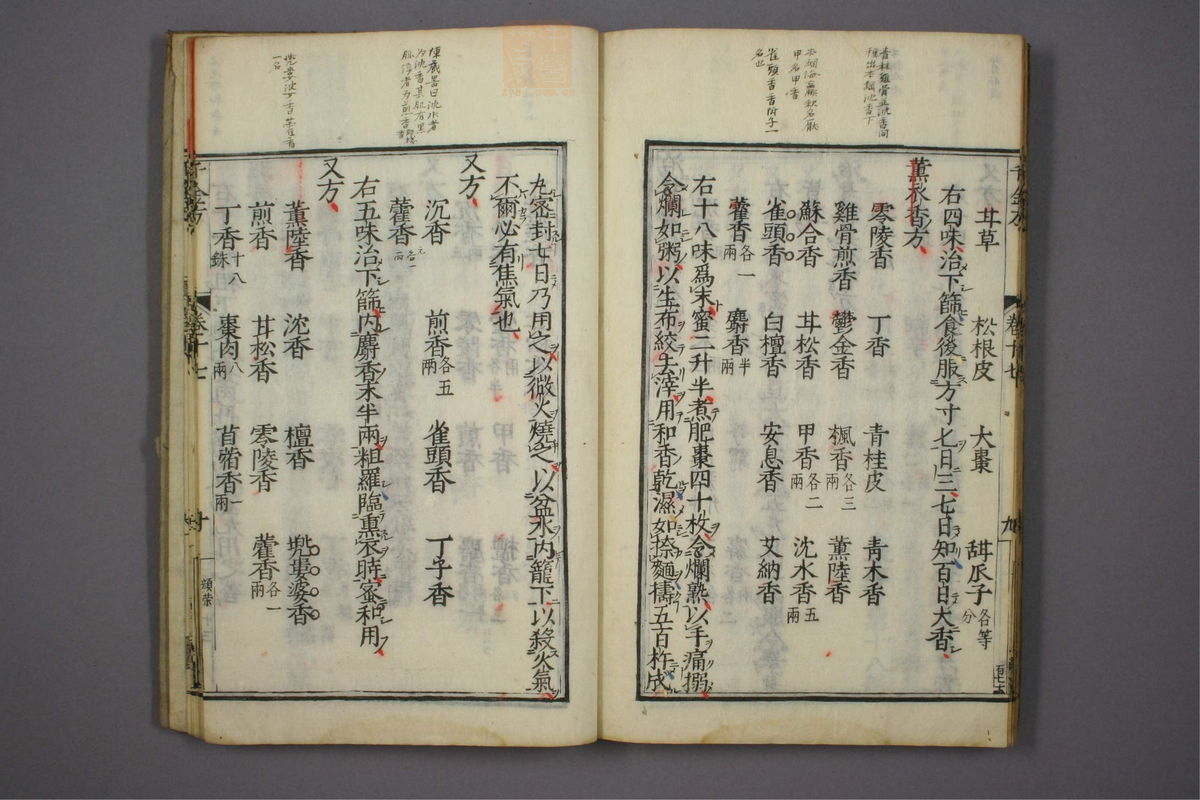 甘草　松根皮　大棗　甜瓜子各等分
右四味治下篩食後服方寸匕日三七日知百日大香
薰衣香方
零陵香　丁香　青桂皮　青木香
雞骨煎香　鬱金香　楓香各三兩　薰陸香
蘇合香　甘松香　甲香各二兩　沈水香五兩
雀頭香　白檀香　安息香　艾納香
藿香各一兩　麝香半兩
右十八味爲末蜜二升半煮肥棗四十枚令爛熟以手痛搦
令爛如粥以生布絞去滓用和香乾濕如捺麵擣五百杵成
丸密封七日乃用之以微火燒之以盆水內籠下以殺火氣
不爾必有焦氣也
又方
沉香　煎香各五兩　雀頭香　丁子香
藿香各一兩
右五味治下篩內麝香末半兩粗羅臨熏衣時蜜和用
又方
薰陸香　沈香　檀香　兜婁婆香
煎香　甘松香　零陵香　藿香各一兩
丁香十八銖　棗肉八兩　苜蓿香一兩
千金方
卷十七
十
青桂雞骨並沈香同
種出本綱沈香下
甲名甲香
雀頭香香附子一
名也